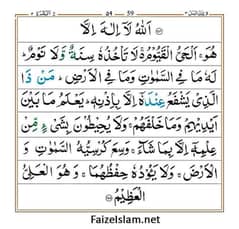 اَللّٰهُ لَاۤ اِلٰهَ اِلَّا
هُوَ ۚ اَلْحَیُّ الْقَیُّوْمُ ۚ لَا تَاْخُذُهٗ سِنَةٌ وَّلَا نَوْمٌ ؕ
لَهٗ مَا فِی السَّمٰوٰتِ وَمَا فِی الْاَرْضِ ؕ مَنْ ذَا
الَّذِیْ یَشْفَعُ عِنْدَهٗۤ اِلَّا بِاِذْنِهٖ ؕ یَعْلَمُ مَا بَیْنَ
اَیْدِیْهِمْ وَمَا خَلْفَهُمْ ۚ وَلَا یُحِیْطُوْنَ بِشَیْءٍ مِّنْ
عِلْمِهٖۤ اِلَّا بِمَا شَآءَ ۚ وَسِعَ كُرْسِیُّهُ السَّمٰوٰتِ وَ
الْاَرْضَ ۚ وَلَا یَـُٔوْدُهٗ حِفْظُهُمَا ۚ وَهُوَ الْعَلِیُّ
الْعَظِیْمُ
FaizeIslam.net